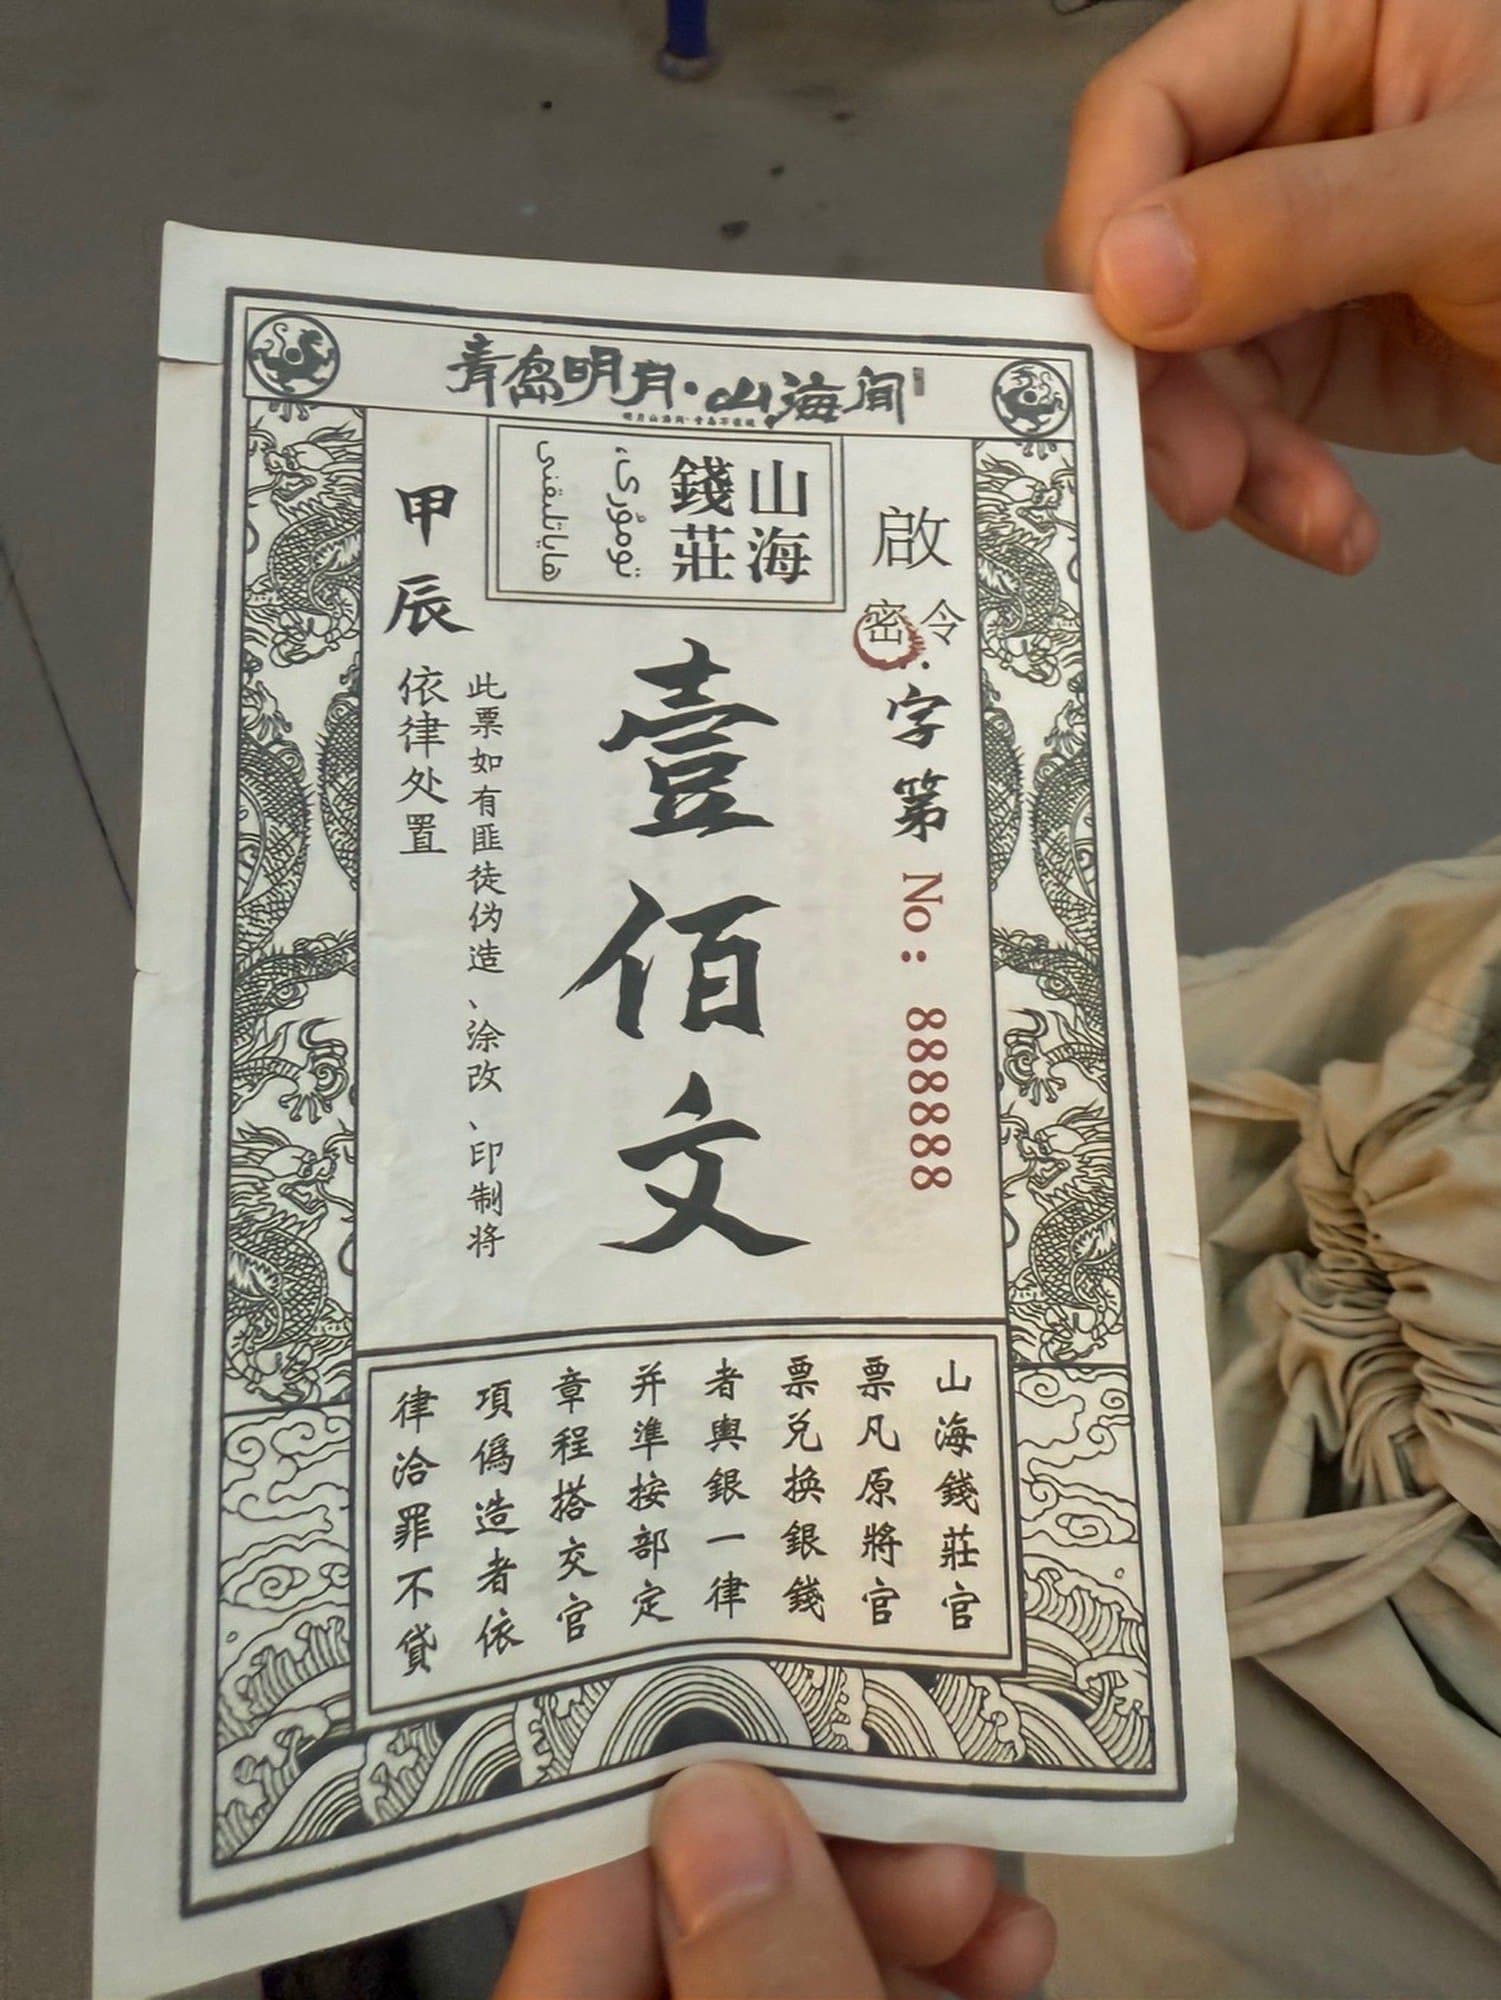 青岛明月·山海间
山海
錢莊
تومۇرى،
ھاياتلىقنى
啟
密令:
字第 No: 888888
壹佰文
此票如有匪徒伪造、涂改、印制将
依律处置
甲辰
山海錢莊官
票凡原將官
票兑换銀錢
者輿銀一律
并準按部定
章程搭交官
項僞造者依
律洽罪不貸